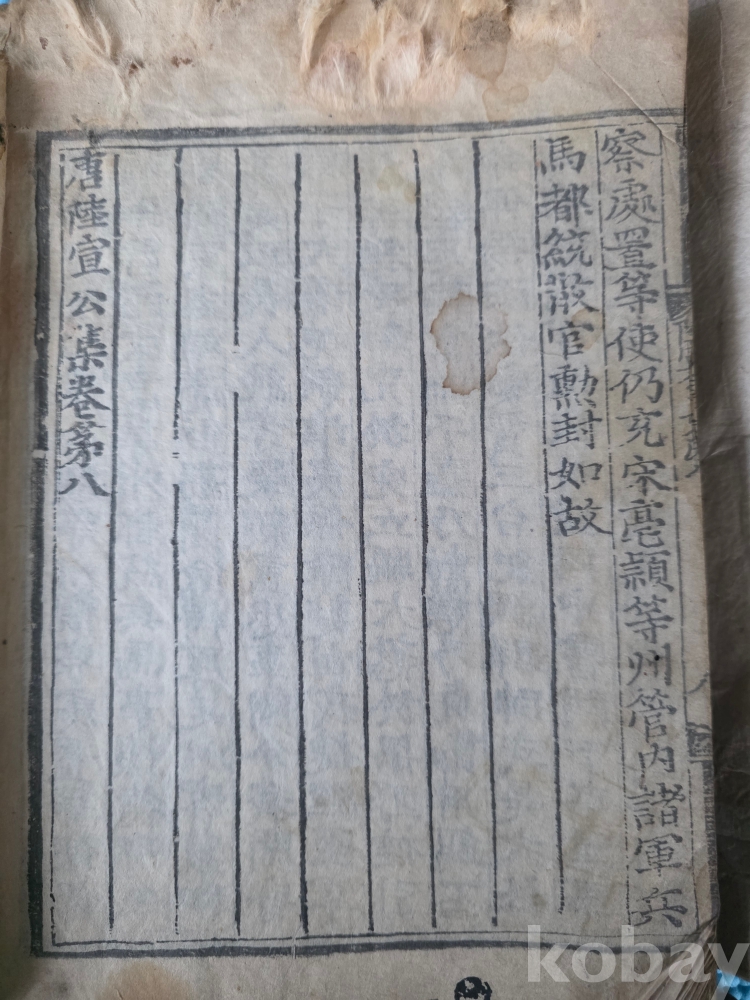 察處置等使仍充宋亳頴等州管内諸軍兵
馬都統散官勲封如故
唐陸宣公集卷第八
kobay